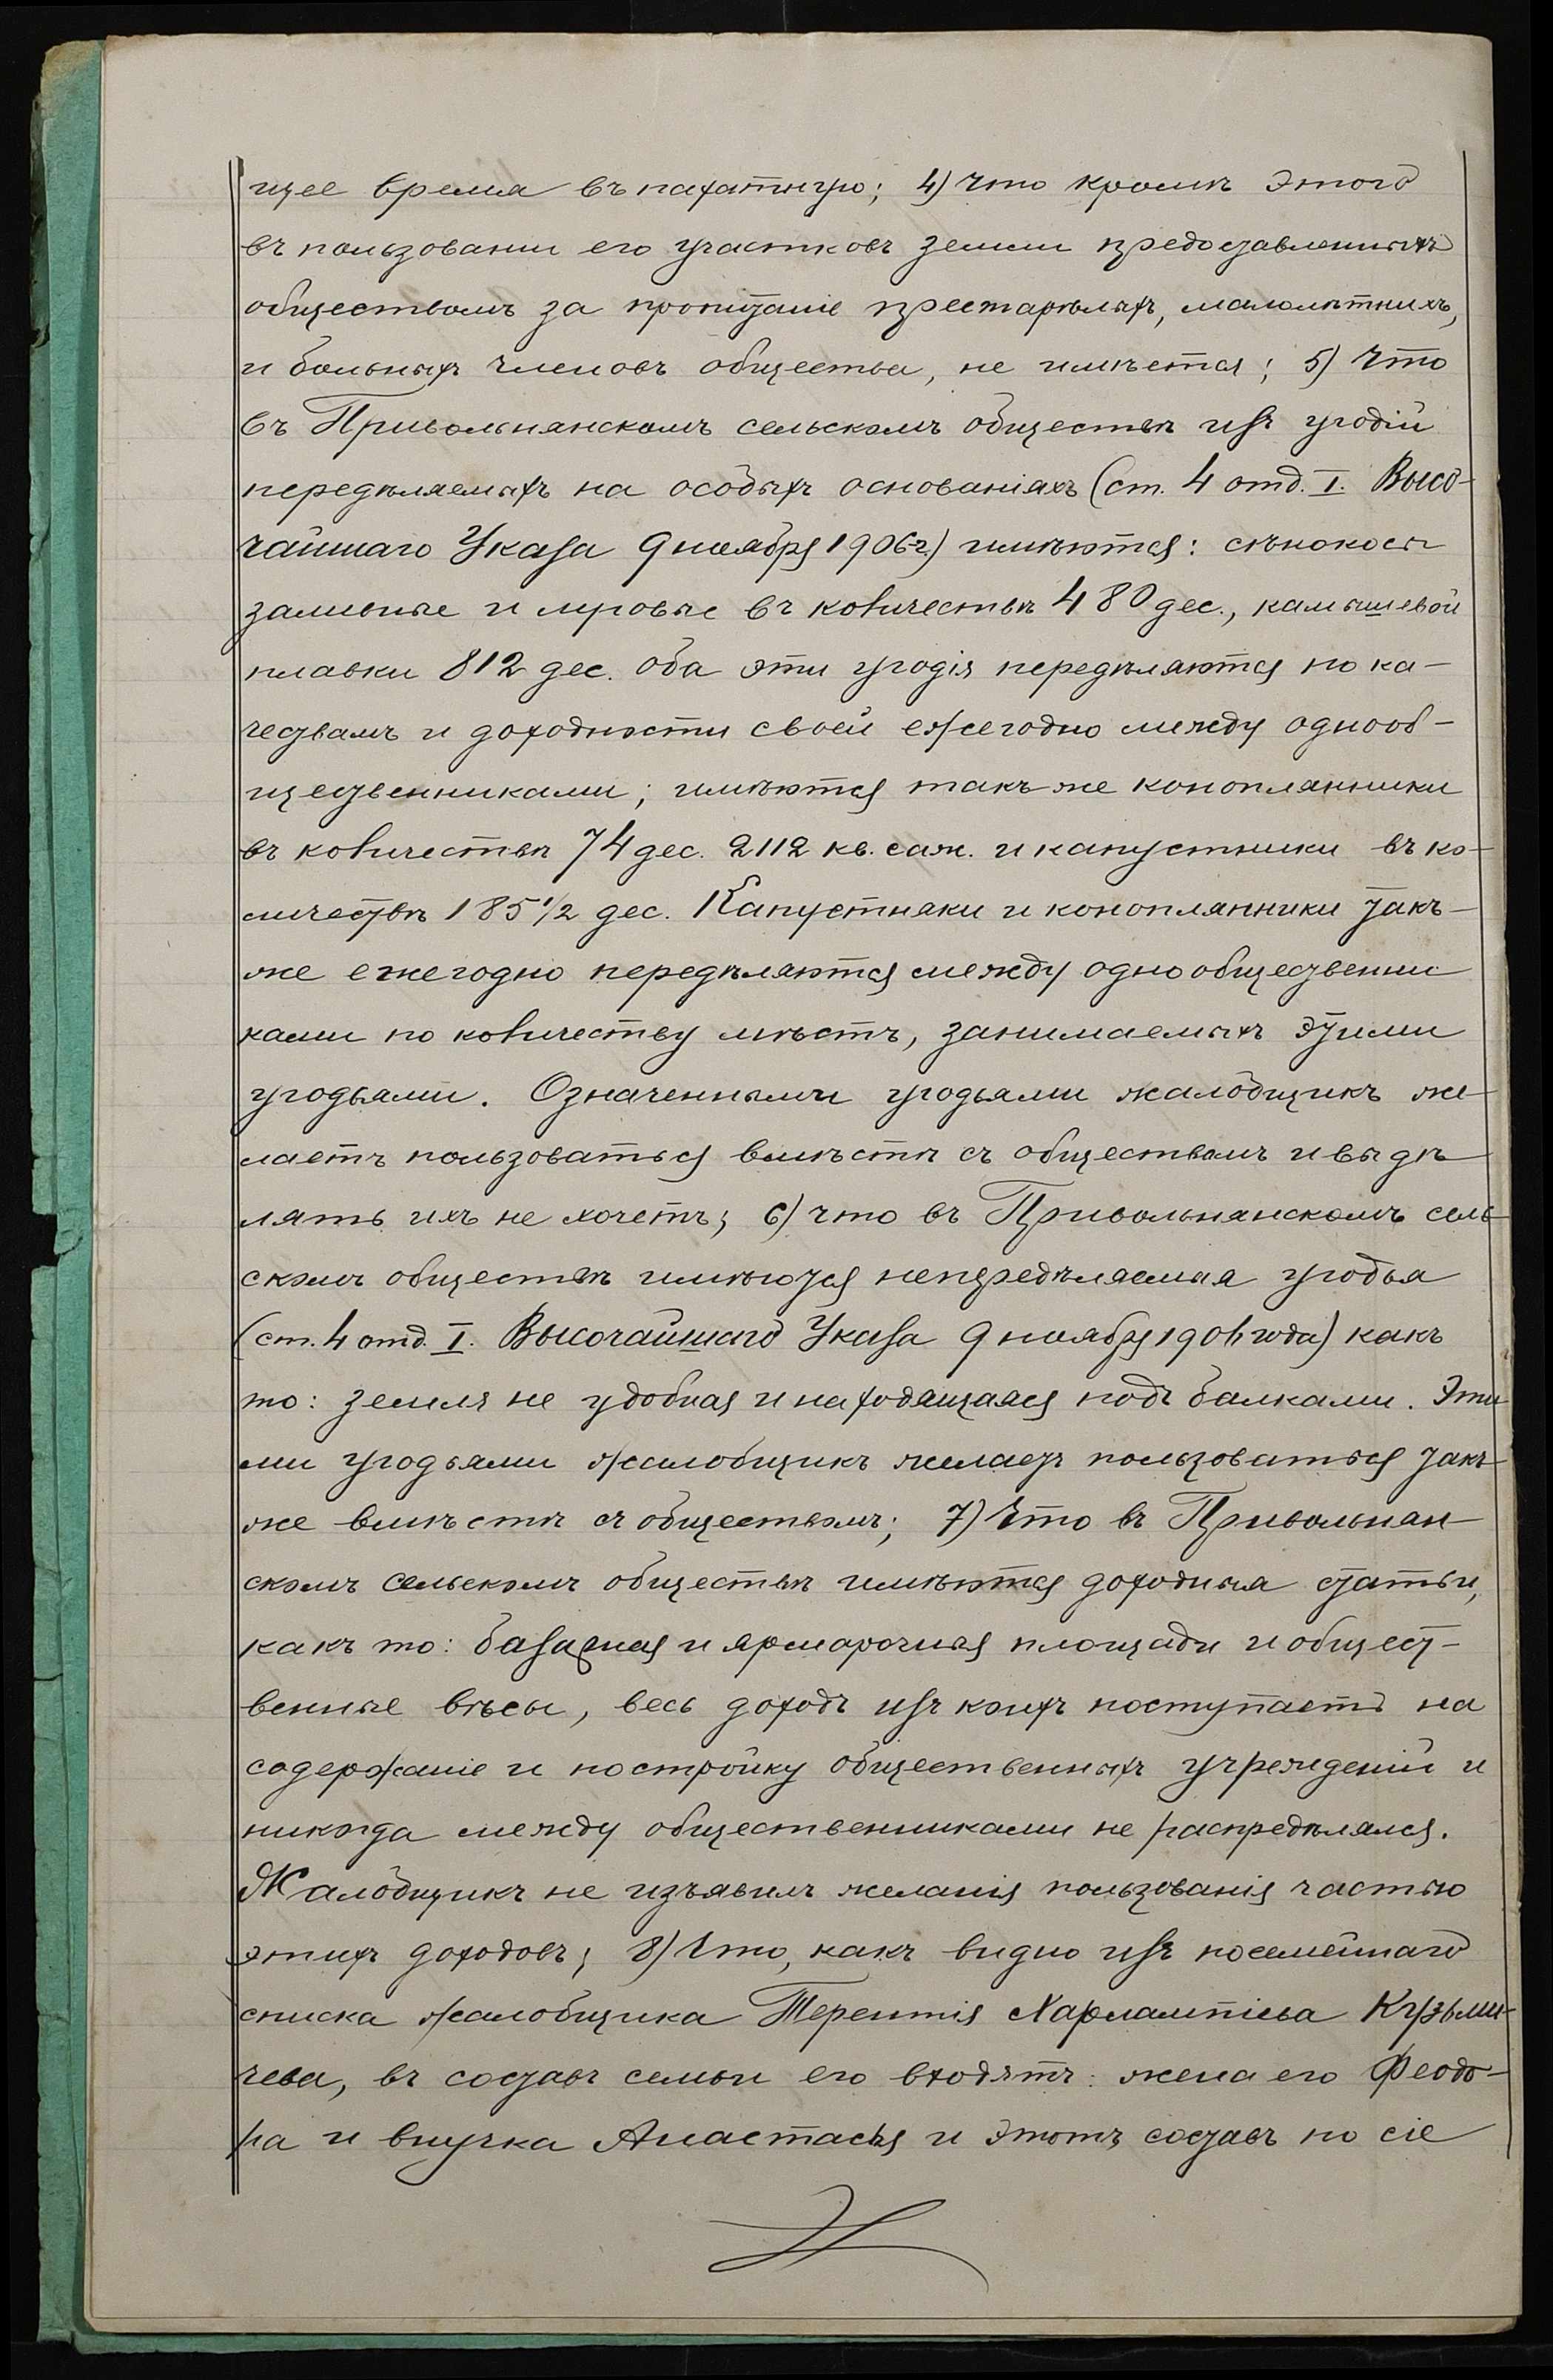 щее время въ пахатную; 4) Что кромѣ этого
въ пользовании его участковъ земли предоставленныхъ
обществомъ за пропитаніе престарѣлыхъ, малолѣтнихъ,
и больныхъ членовъ общества, не имѣется; 5) Что
въ Привольнянскомъ сельскомъ обществѣ изъ угодій
передѣляемыхъ на особыхъ основаніяхъ (ст. 4 отд. I. Высо-
чайшаго Указа 9 ноября 1906 г.) имѣются: сѣнокосы
заливные и луговые въ количествѣ 480 дес., камышевой
плавки 812 дес. оба эти угодія передѣляются по ка-
чествамъ и доходности своей ежегодно между однооб-
щественниками; имѣются такъ же конопляники
въ количествѣ 74 дес. 2112 кв. саж. и капустники въ ко-
личествѣ 185 1/2 дес. Капустняки и конопляники такъ-
же ежегодно передѣляются между однообщественни
ками по количеству мѣстъ, занимаемыхъ этими
угодьями. Означенными угодьями жалобщикъ же-
лаетъ пользоваться вмѣстѣ съ обществомъ и выдѣ
лять ихъ не хочетъ; 6) что въ Привольнянскомъ сель
скомъ обществѣ имѣются непередѣляемыя угодья
(ст. 4 отд. I. Высочайшаго Указа 9 ноября 1906 года) какъ
то: земля не удобная и находящаяся подъ балками. Эти
ми угодьями жалобщикъ желаетъ пользоваться такъ
же вмѣстѣ съ обществомъ; 7) Что въ Привольнян-
скомъ сельскомъ обществѣ имѣются доходныя статьи,
какъ то: базарная и ярмарочная площади и общест-
венные вѣсы, весь доходъ изъ коихъ поступаетъ на
содержаніе и постройку общественныхъ учрежденій и
никогда между общественниками не распредѣлялся.
Жалобщикъ не изъявилъ желанія пользованія частью
этихъ доходовъ; 8) Что, какъ видно изъ посемейнаго
списка жалобщика Терентія Харлампіева Кузьми-
чева, въ составъ семьи его входятъ: жена его Феодо-
ра и внучка Анастасья и этотъ составъ по сіе